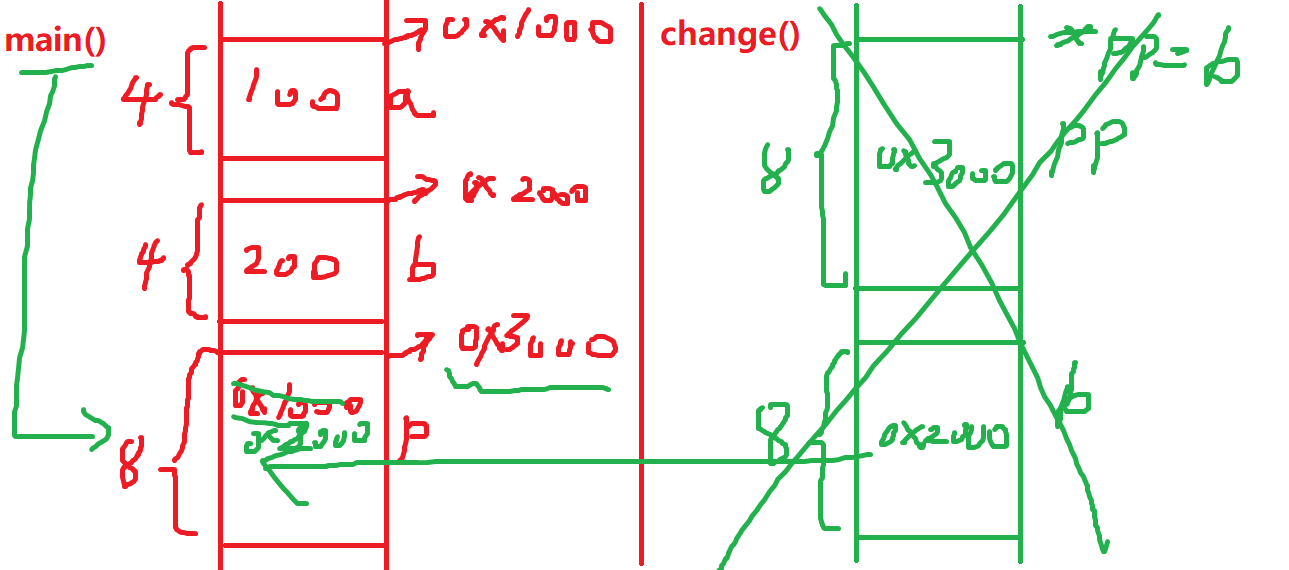 main()
0x1000
4
100
a
0x2000
4
200
b
0x3000
8
0x1000
0x2000
p
change()
*pp=b
8
0x3000
pp
8
0x2000
b